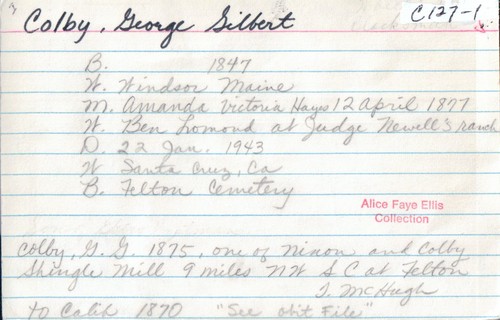 C127-1
Colby, George Gilbert
B. 1847
W. Windsor Maine
M. Amanda Victoria Hayes 12 April 1877
W. Ben Lomond at Judge Newell's ranch
D. 22 Jan. 1943
W Santa Cruz, Ca
B. Felton Cemetery
Alice Faye Ellis
Collection
Colby, G. G. 1875, one of Nixon and Colby
Shingle Mill 9 miles NW S C at Felton
T. McHugh
to Calif 1870 "See obit File"